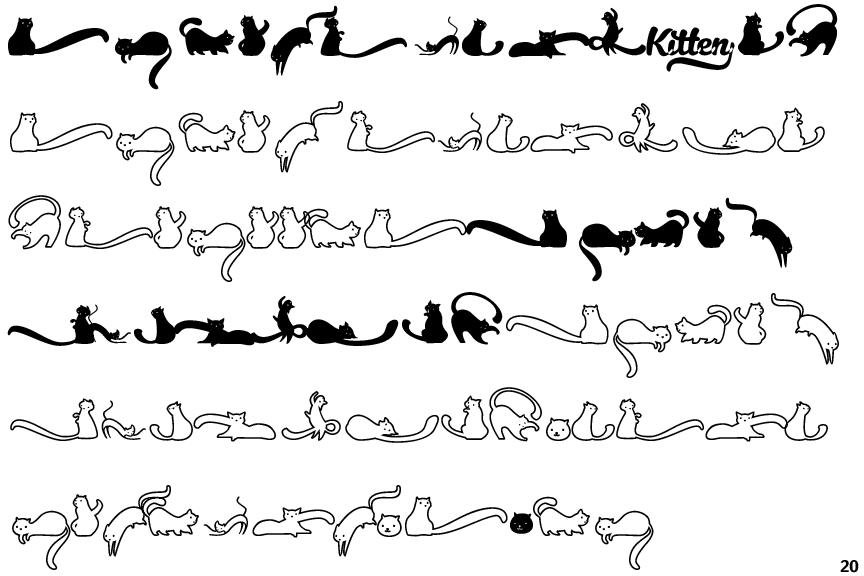 Kitten
20